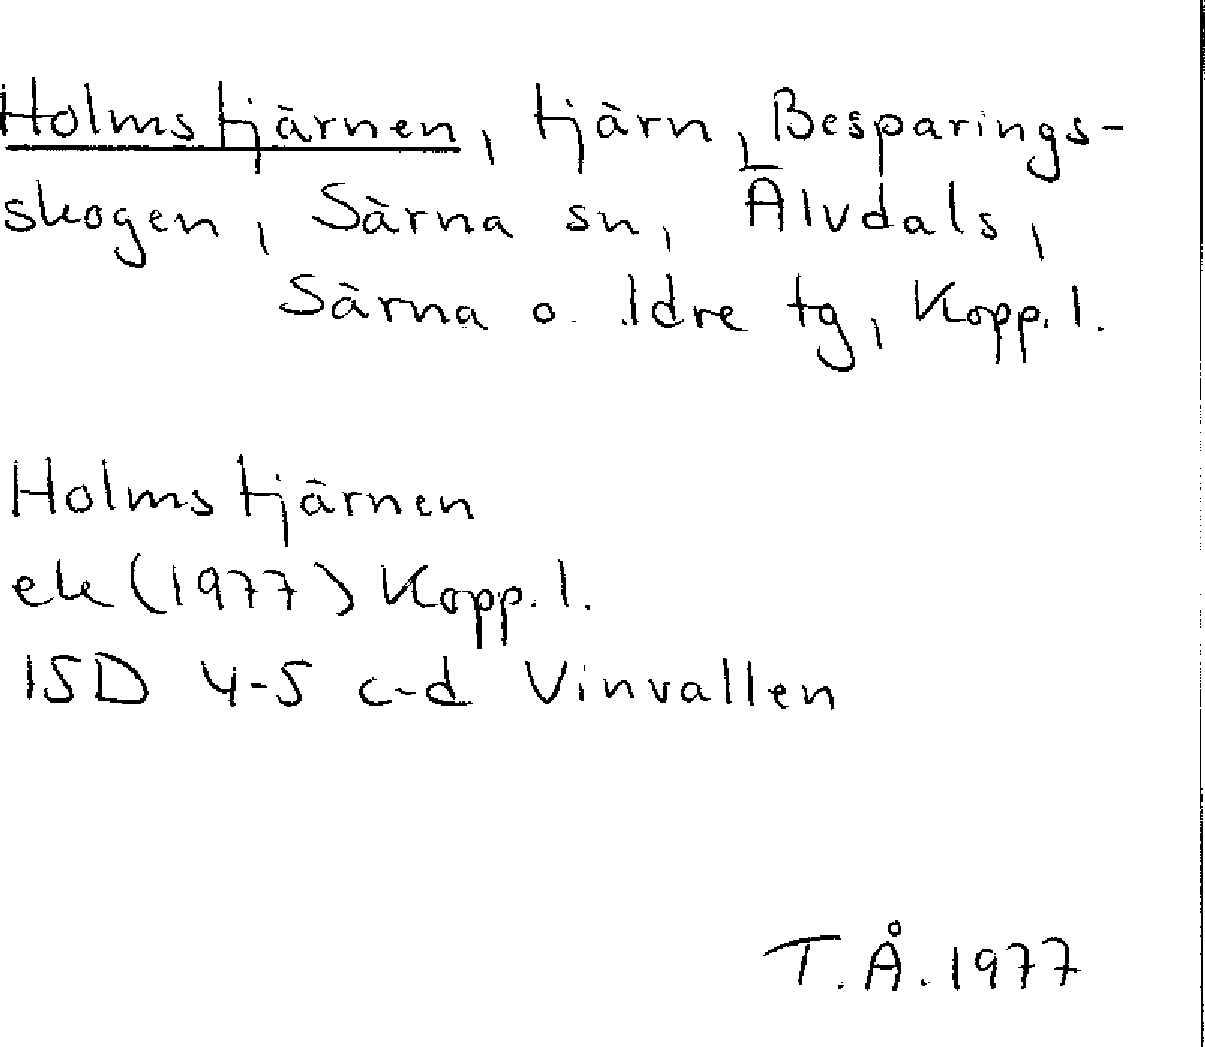 Holmstjärnen, tjärn, Besparings-
skogen, Särna sn, Älvdals,
Särna o. Idre tg, Kopp. l.
Holmstjärnen
ek (1977) Kopp. l.
15D 4-5 c-d Vinvallen
T. Å. 1977